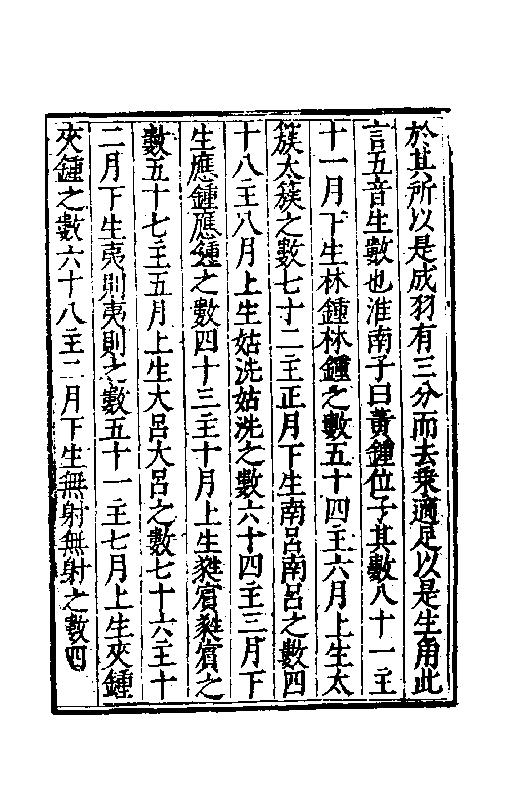 於其所以是成羽有三分而去乘適足以是生角此
言五音生數也淮南子曰黃鍾位子其數八十一主
十一月下生林鍾林鍾之數五十四主六月上生太
簇太簇之數七寸二主正月下生南呂南呂之數四
十八主八月上生姑洗姑洗之數六十四主三月下
生應鍾應鍾之數四十三主十月上生蕤賓蕤賓之
數五十七主五月上生大呂大呂之數七十六主十
二月下生夷則夷則之數五十一主七月上生夾鍾
夾鍾之數六十八主二月下生無射無射之數四